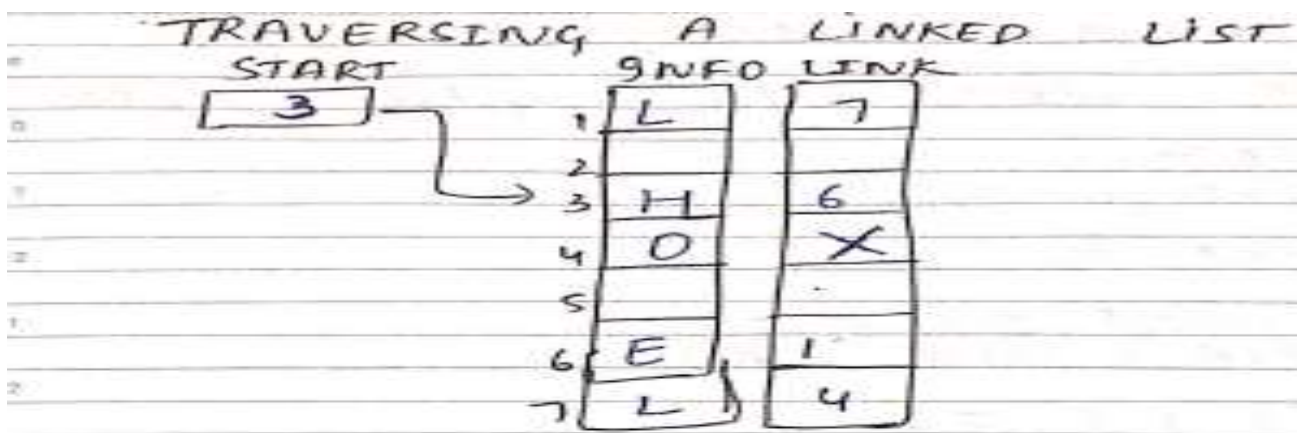 TRAVERSING A LINKED LIST
START INFO LINK
3 1 L 7
2
3 H 6
4 O X
5
6 E 1
7 L 4